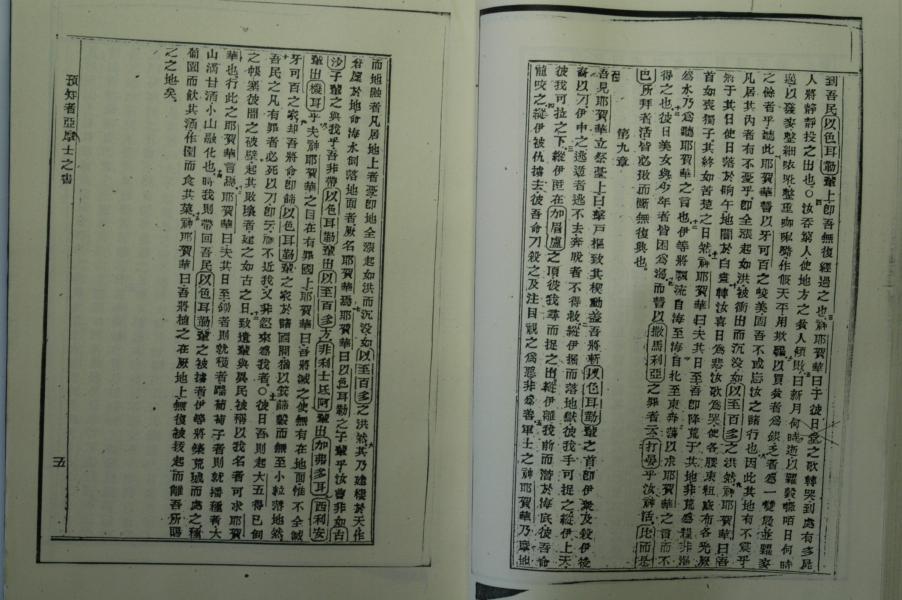 到吾民以色耳勒輩上即吾無復經過之也神耶賀華曰于彼日堂之歌轉哭到處有多屍
人將靜靜投之出也○汝吞窮人使地方之貧人傾敗曰新月何時逝以糶穀日何時
過以發麥整細整重作假天平用欺騙以買貧者為銀乏者為一雙屐並糶麥
之餘者乎聽此耶賀華誓以牙可百之峻美固吾不或忘汝之諸行也因此其地有不震乎
凡居其內者有不憂乎即全漲起如洪被衝出而沉沒如以至百多之洪然神耶賀華曰吾
將于其日使日落於晌午地闇於白晝轉汝喜日為悲汝歌為哭使各腰束粗麻布各光厥
首如喪獨子其終如苦楚之日然神耶賀華曰夫其日至吾即降荒于其地非荒為糧非渴
為水乃為聽耶賀華之言也伊等將飄流自海至海自北至東奔蕩以求耶賀華之言而不
得之也彼日美女與少年者皆困為渴而誓以撒馬利亞之罪者云打晏乎汝神活比而是
巴所拜者活皆必損而斷無復興也
第九章
吾見耶賀華立祭臺上曰擊戸樞致其楔動蓋吾將斬以色耳勒輩之首即伊眾及殺伊後
裔以刀伊中之逃遁者逃不去奔脫者不得救縱伊掘而落地獄彼我手可捉之縱伊上天
彼我可拉之下縱伊匿在加眉盧之頂彼我尋而捉之出縱伊離我前而潛於海底彼吾命
蛇咬之縱伊被仇擄去彼吾命刀殺之及注目視之為惡非為善軍士之神耶賀華乃摩地
而地融者凡居地上者憂即地全漲起如洪而沉沒如以至百多之洪然其乃建樓於天作
層於地命海水倒落地面者厥名耶賀華耶賀華曰以色耳勒之子輩乎汝曹非如古
沙子輩之與我乎吾非帶以色耳勒輩出以至百多方非利士氐阿輩出加弗多耳西利安
輩出機耳乎夫神耶賀華之目在有罪國上耶賀華曰吾將滅之使無有在地面惟不全滅
牙可百之家却吾將命即篩以色耳勒輩之家於諸國間猶以箕篩穀而無至小粒落地然
吾民之凡有罪者必死以刀即云禍不近我又弗忽來為我者○彼日吾則起大五得已倒
之帳幕彼開之被壁起其敗壞者建之如古之日致遺輩與異民被稱以我名者可求耶賀
華也行此之耶賀華言焉耶賀華曰夫其日至鋤者則就穫者踹葡萄子者則就播種者大
山滴甘酒小山融化也時我則帶回吾民以色耳勒輩之被擄者伊等將築荒城而處之種
葡園而飲其酒作園而食其菓神耶賀華曰吾將植之在厥地上無復被拔起而離吾所賜
之之地矣
預知者亞麽士之書
五